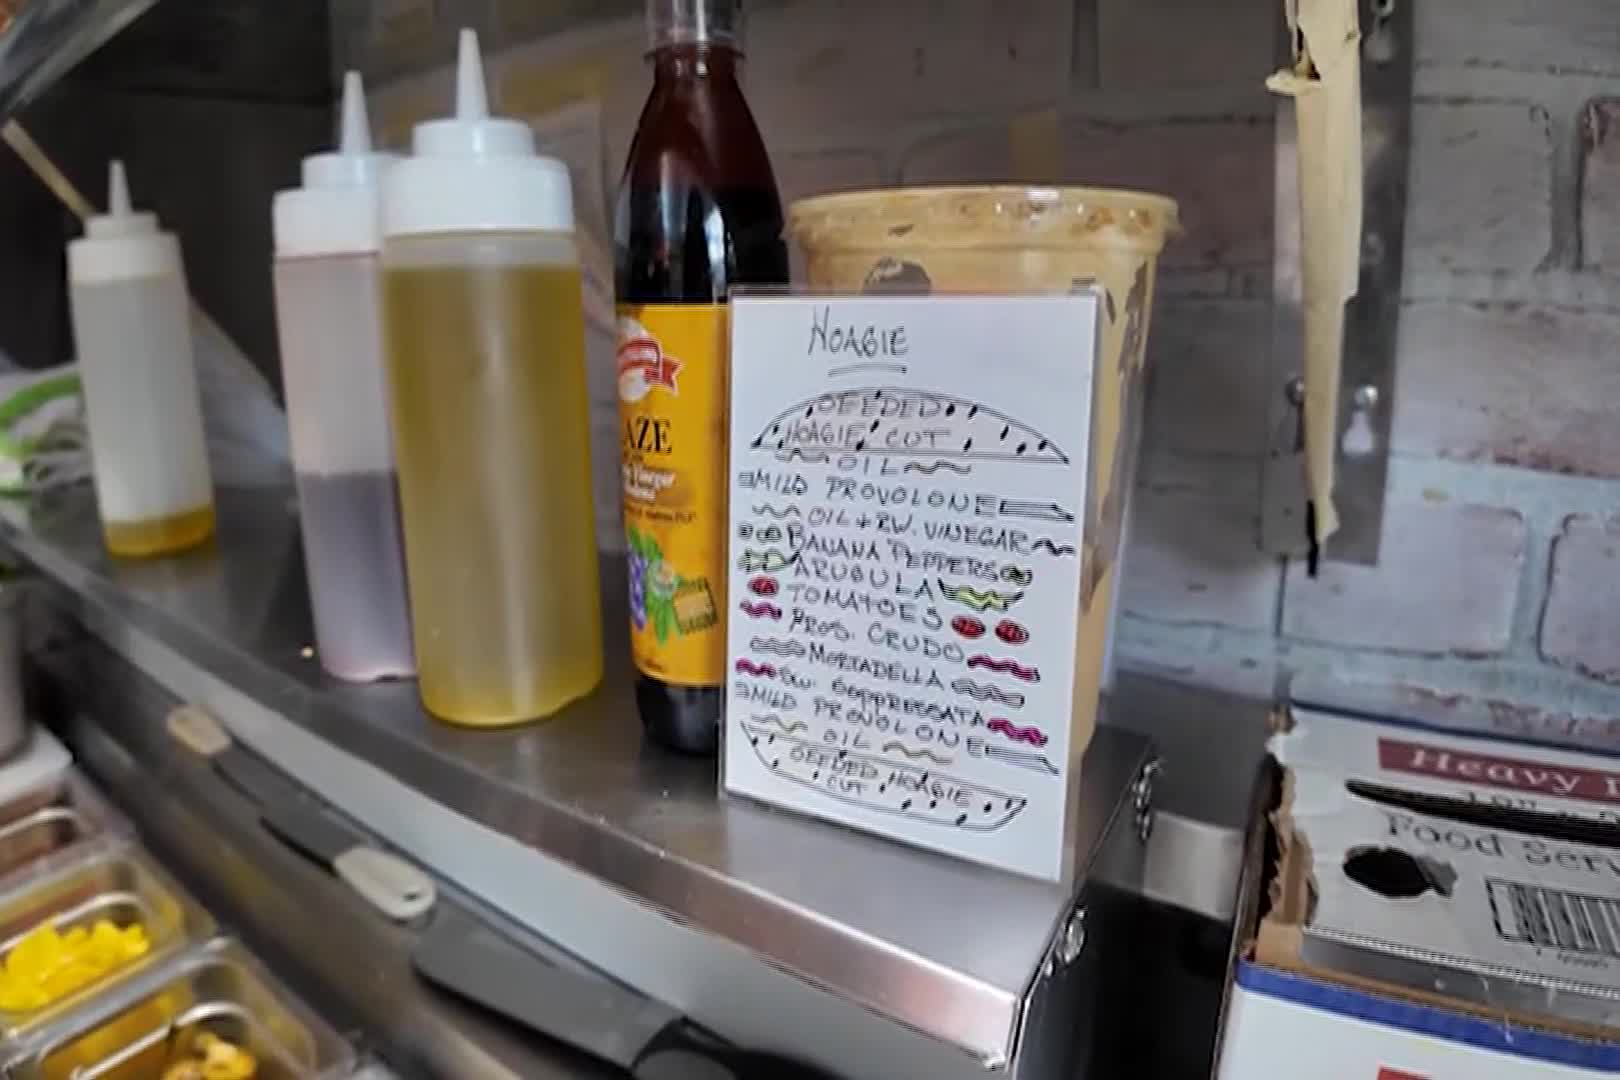 HOAGIE
SEEDED
HOAGIE CUT
OIL
MILD PROVOLONE
OIL + RW. VINEGAR
BANANA PEPPERS
ARUGULA
TOMATOES
PROS. CRUDO
MORTADELLA
SW. SOPPRESSATA
MILD PROVOLONE
OIL
SEEDED HOAGIE
CUT
AZE
Vinegar
Heavy
Food Serv